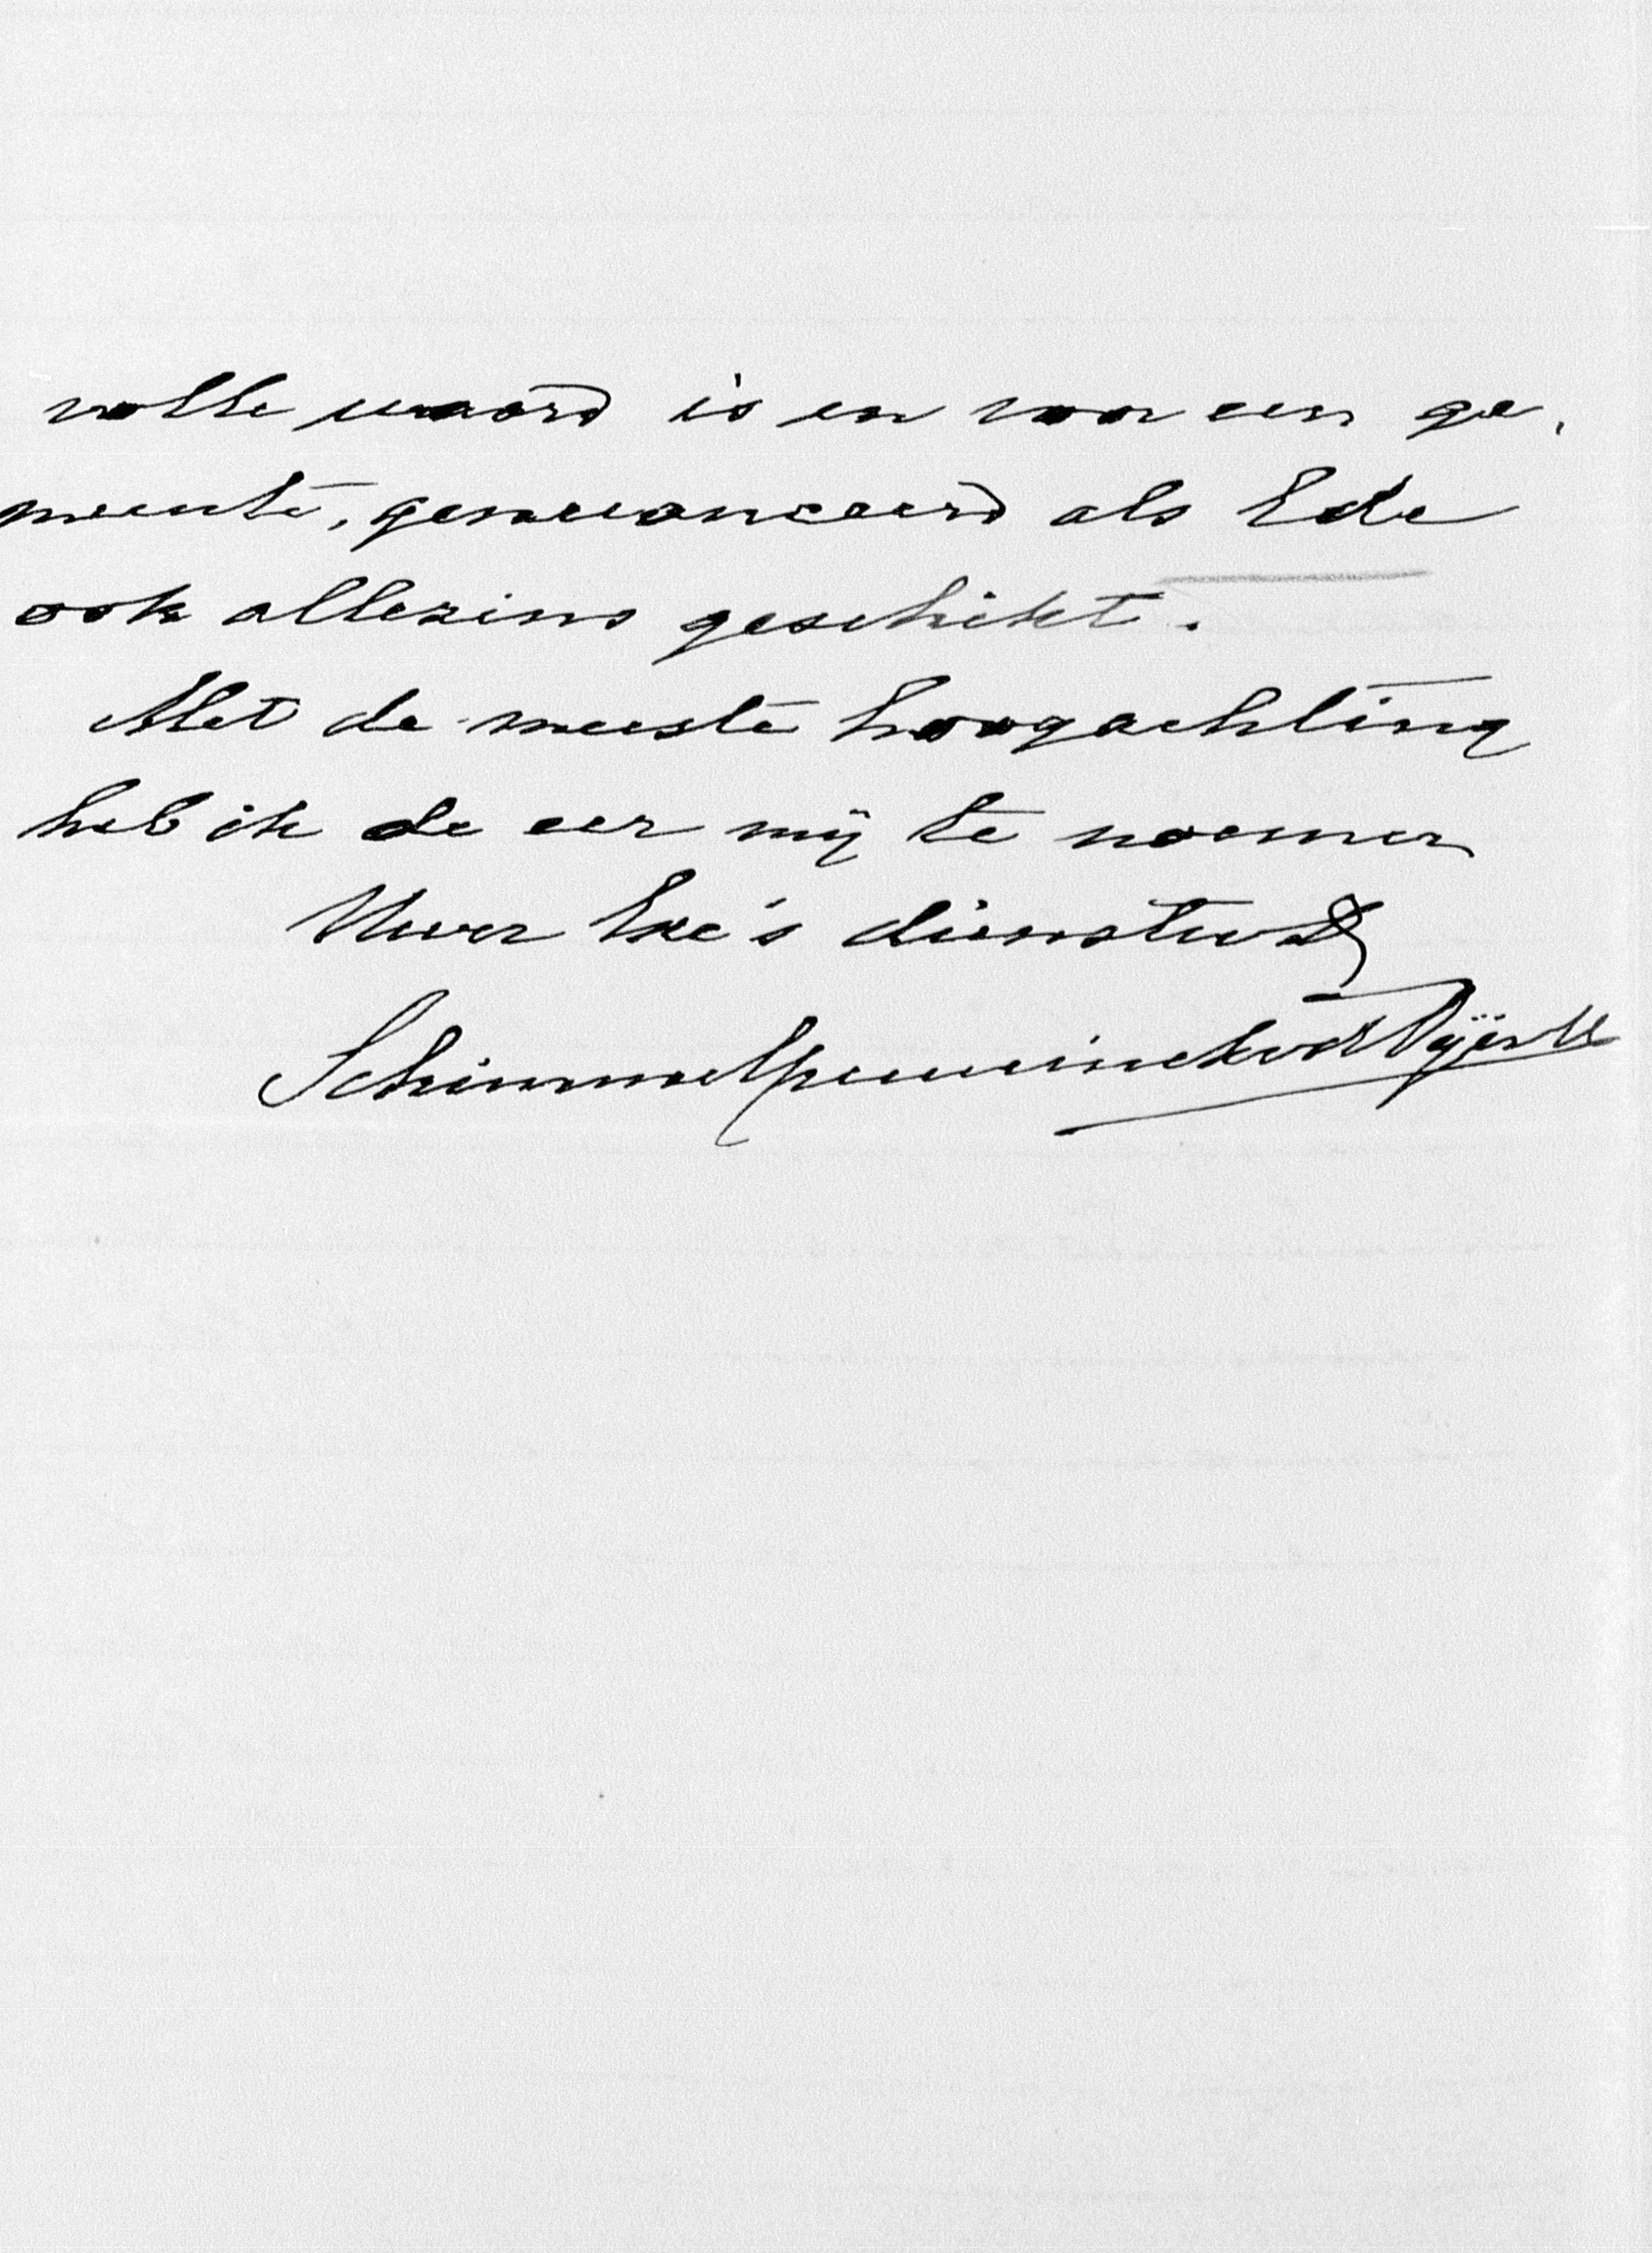 volle waard is en voor een ge-
meente, genuanceerd als Ede
ook alleszins geschikt.
Met de meeste hoogachting
heb ik de eer mij te noemen
Uwer Exc's dienstw
Schimmelpenninck vd Oÿe